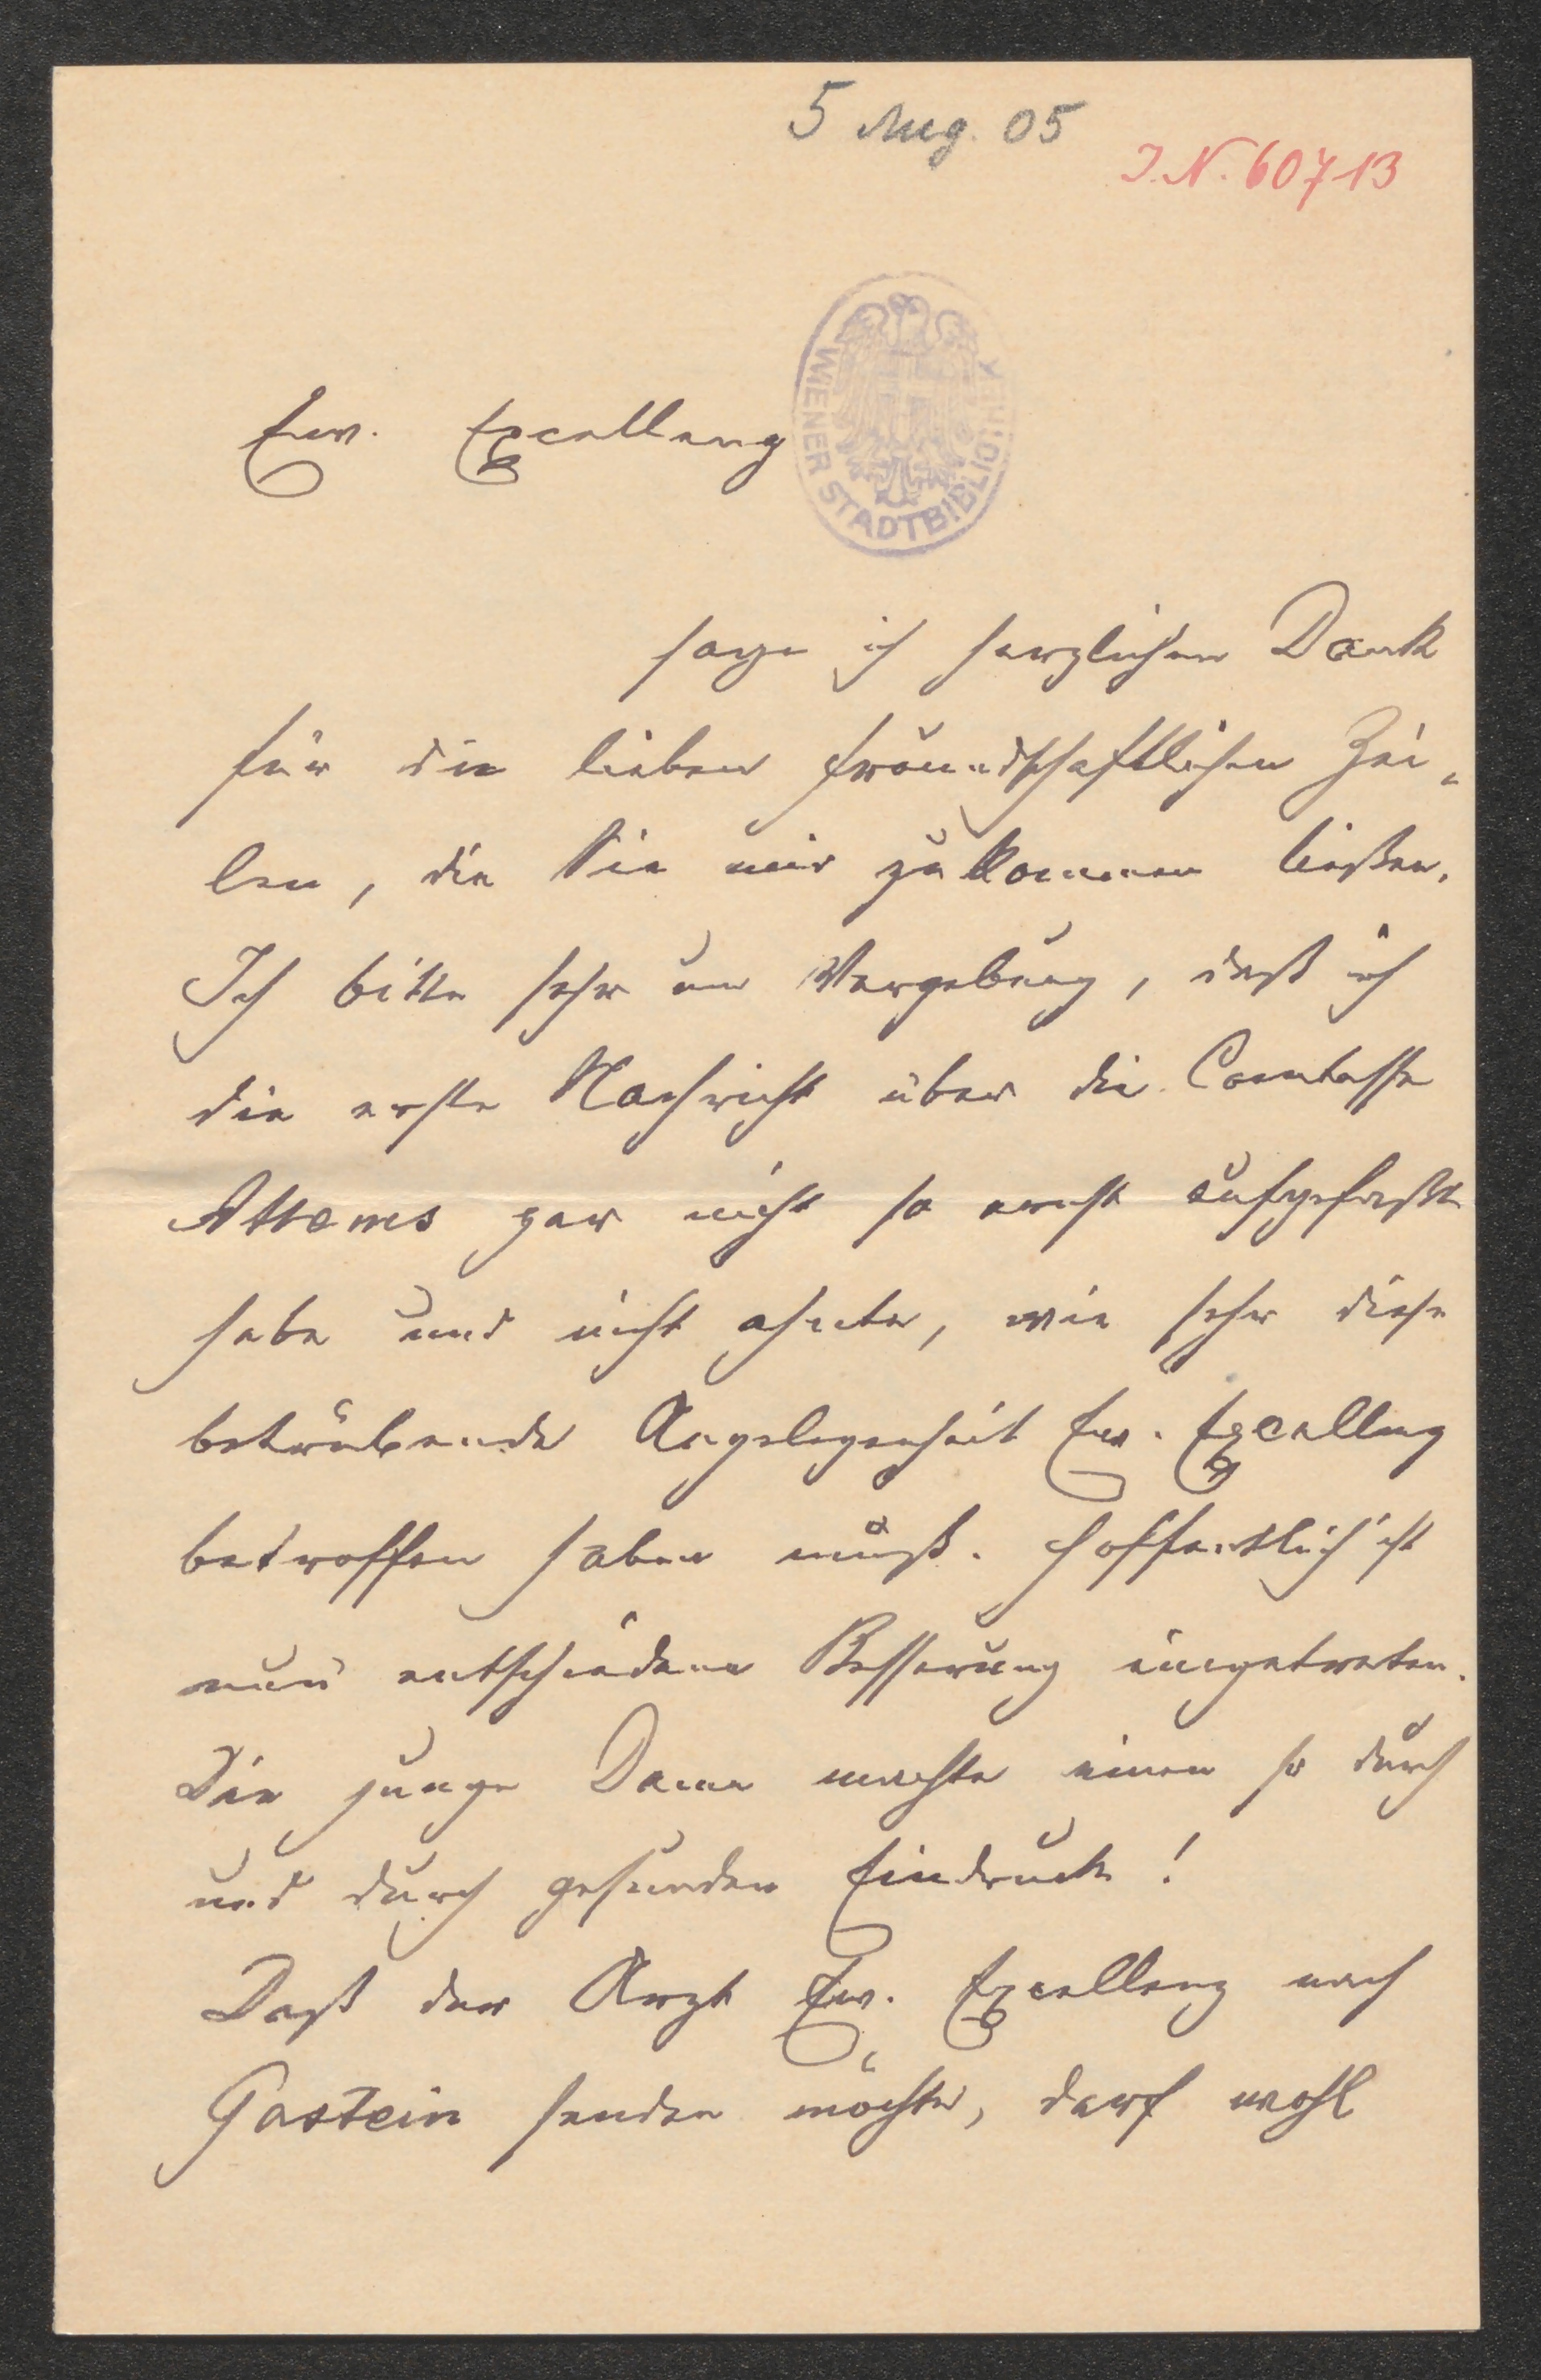 5 Aug. 05
I.N. 60713
WIENER STADTBIBLIOTHEK
Euer. Excellenz
sage ich herzlichen Dank
für die lieben freundschaftlichen Zei-
len, die Sie mir zukommen ließen.
Ich bitte sehr um Vergebung, daß ich
die erste Nachricht über die Comtesse
Attems gar nicht so ernst aufgefaßt
habe und nicht ahnte, wie sehr diese
betrübende Angelegenheit Eu. Excellenz
betroffen haben muß. Hoffentlich ist
nun entschiedene Besserung eingetreten.
Die junge Dame machte einen so durch
und durch gesunden Eindruck!
Daß der Arzt Ew. Excellenz nach
Gastein senden möchte, darf wohl